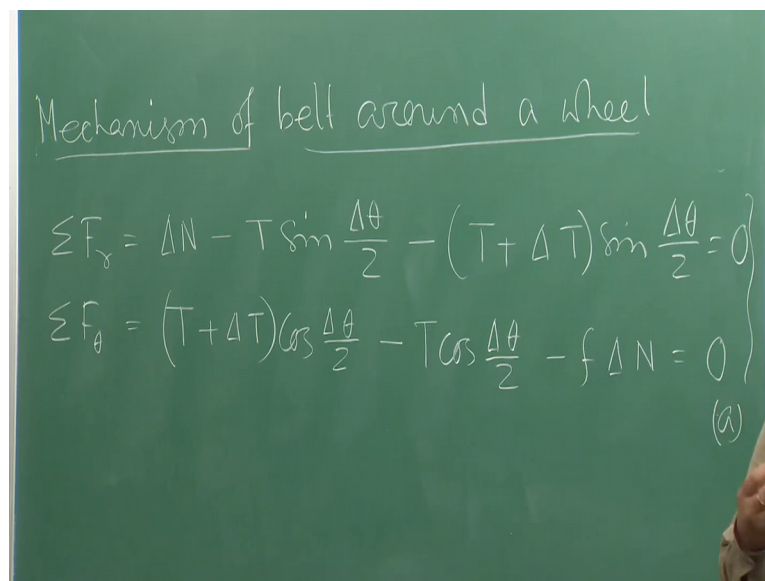 Mechanism of belt around a wheel
ΣF_r = ΔN − T Sin Δθ/2 − (T + ΔT) Sin Δθ/2 = 0
ΣF_θ = (T + ΔT) Cos Δθ/2 − T Cos Δθ/2 − f ΔN = 0
(a)